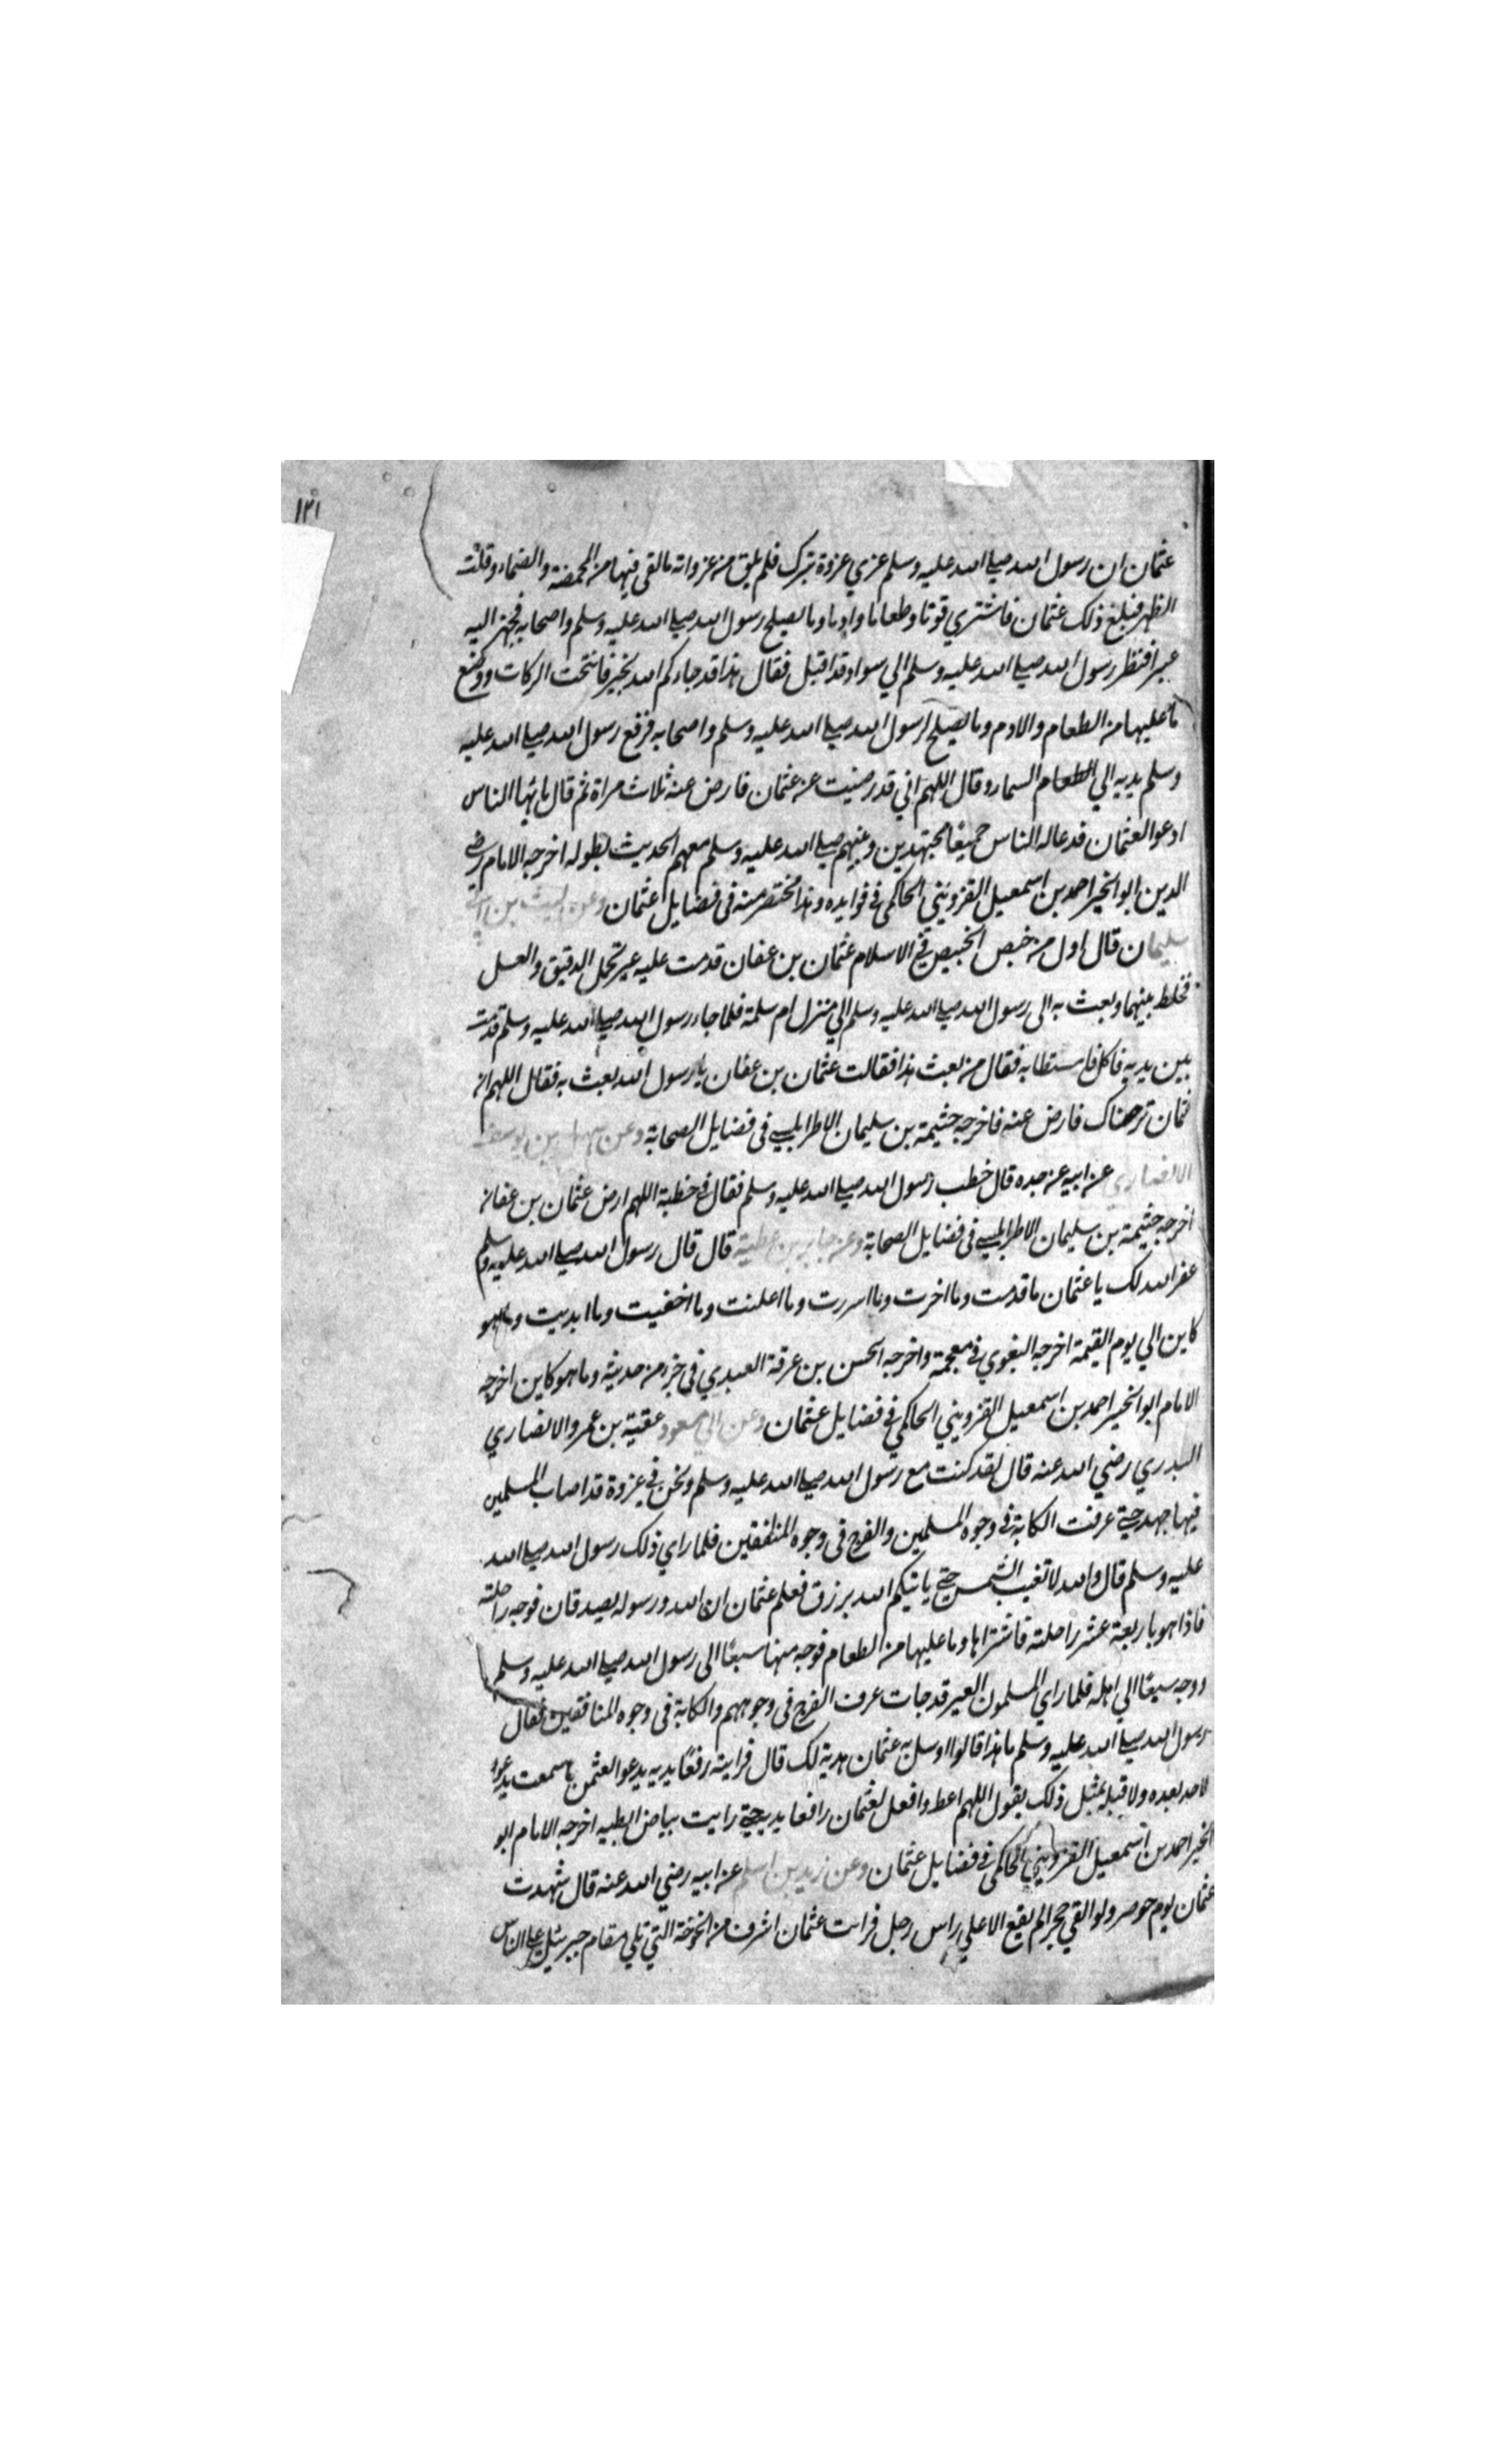 ١٣١
عثمان ان رسول الله صلي الله عليه وسلم غزي غزوة تبوك فلم يلق من غزواته ما لقي فيها من المخمصة والضماء وقلت
الظهر فبلغ ذلك عثمان فاشتري قوتا وطعاما وادما وما يصلح رسول الله صلي الله عليه وسلم واصحابه فجهز اليه
عيرا فنظر رسول الله صلي الله عليه وسلم الي سواد قد اقبل فقال هذا قد جاءكم الله بخير فانتخت الركات ووضع
ما عليها من الطعام والادم وما يصلح لرسول الله صلي الله عليه وسلم واصحابه فرفع رسول الله صلي الله عليه
وسلم يديه الي السماء وقال اللهم اني قد رضيت عن عثمان فارض عنه ثلاث مراة ثم قال يا ايها الناس
ادعوا لعثمان فدعا له الناس جميعًا مجتهدين ونبيهم صلي الله عليه وسلم معهم الحديث بطوله اخرجه الامام رضي
الدين ابو الخير احمد بن اسمعيل القزويني الحاكمي في فوايده وهذا مختصر منه في فضايل عثمان وعن ليث بن ابي
سليمان قال اول من خبص الخبيص في الاسلام عثمان بن عفان قدمت عليه عير تحمل الدقيق والعسل
فخلط بينهما وبعث به الى رسول الله صلي الله عليه وسلم الي منزل ام سلمة فلما جاء رسول الله صلي الله عليه وسلم قدمت
بين يديه فاكل فاستطابه فقال من بعث هذا فقالت عثمان بن عفان يا رسول الله بعث به فقال اللهم ان
عثمان ترضاك فارض عنه فاخرجه خثيمة بن سليمان الاطرابلسي في فضايل الصحابة وعن سهل بن يوسف
الانصاري عن ابيه عن جده قال خطب رسول الله صلي الله عليه وسلم فقال في خطبة اللهم ارض عثمان بن عفان
اخرجه خثيمة بن سليمان الاطرابلسي في فضايل الصحابة وعن جابر بن عطية قال قال رسول الله صلي الله عليه وسلم
غفر الله لك يا عثمان ما قدمت وما اخرت وما اسررت وما اعلنت وما اخفيت وما ابديت وما هو
كاين الي يوم القيمة اخرجه البغوي في معجمة واخرجه الحسن بن عرفة العبدي في جزء من حديثه وما هو كاين اخرجه
الامام ابو الخير احمد بن اسمعيل القزويني الحاكمي في فضايل عثمان وعن ابي مسعود عقبة بن عمرو الانصاري
البدري رضي الله عنه قال لقد كنت مع رسول الله صلي الله عليه وسلم ونحن في غزوة قد اصاب المسلمين
فيها جهد حتي عرفت الكابة في وجوه المسلمين والفرح في وجوه المنافقين فلما راي ذلك رسول الله صلي الله
عليه وسلم قال والله لا تغيب الشمس حتي ياتيكم الله برزق فعلم عثمان ان الله ورسوله يصدقان فوجه راحلته
فاذا هو باربعة عشر راحلته فاشتراها وما عليها من الطعام فوجه منها سبعًا الى رسول الله صلي الله عليه وسلم
ووجه سبعًا الي اهله فلما راي المسلمون العير قد جات عرف الفرح في وجوههم والكابة في وجوه المنافقين فقال
رسول الله صلي الله عليه وسلم ما هذا قالوا ارسل به عثمان هدية لك قال فرايته رفعًا يديه يدعوا لعثمن ما سمعت يدعوا
لاحد بعده ولا قبله بمثل ذلك يقول اللهم اعط وافعل لعثمان رافعا يديه حتي رايت بياض ابطيه اخرجه الامام ابو
الخير احمد بن اسمعيل القزويني الحاكمي في فضايل عثمان وعن زيد بن اسلم عن ابيه رضي الله عنه قال شهدت
عثمان يوم حوصر ولو القي حجر الم يقع الا علي راس رجل فرات عثمان اشرف من الخوخة التي تلي مقام جبرئيل علي الناس